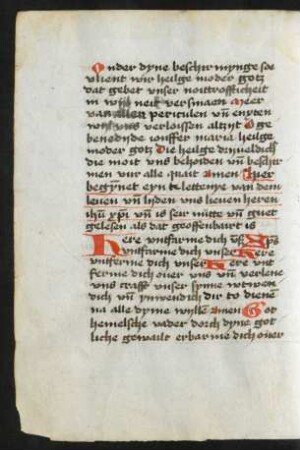 Onder dyne beschirmynge soe
vlient wir heilge moder gotz
dat gebet vnser noittroffticheit
in wilt neit versmaen meer
van allen periculen vn̄ enyten
wilt vns verloissen altzijt O ge
benedyde iouffer maria heilge
moder gotz Die heilge driueldich
die moit vns behoiden vn̄ beschir
men vur alle quait Amen Hier
begynnet eyn lettenye van dem
leuen vn̄ lijden vns lieuen heren
ihū xp̄i vn̄ is seir nutte vn̄ guet
gelesen als dat geoffenbairt is
Here vntfarme dich vnser
vntfarme dich vnser Here
vntferme dich vnser Here vnt
ferme dich ouer vns vn̄ verlene
vns crafft vnser synne
dich vn̄ ynwendich dir to dienē
na alle dyme wylle Amen Got
hemelsche vader dorch dyne got
liche gewalt erbarme dich ouer